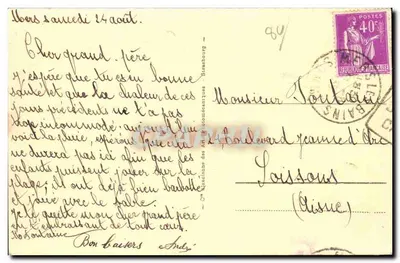 Mers samedi 24 août.
Cher grand-père
J'espère que tu es en bonne
santé et que la chaleur de ces
jours précédents ne t'a pas
trop incommodé; aujourd'hui on
voit la pluie, espérons que cela
ne durera pas ici afin que les
enfants puissent jouer sur la
plage; ils ont déjà bien barboté
et joué avec le sable.
Je te quitte mon cher grand père
en t'embrassant de tout cœur.
Bons baisers André
84
POSTES
40c
BAINS
Monsieur
Boulevard Jeanne d'Arc
Soissons
(Aisne)